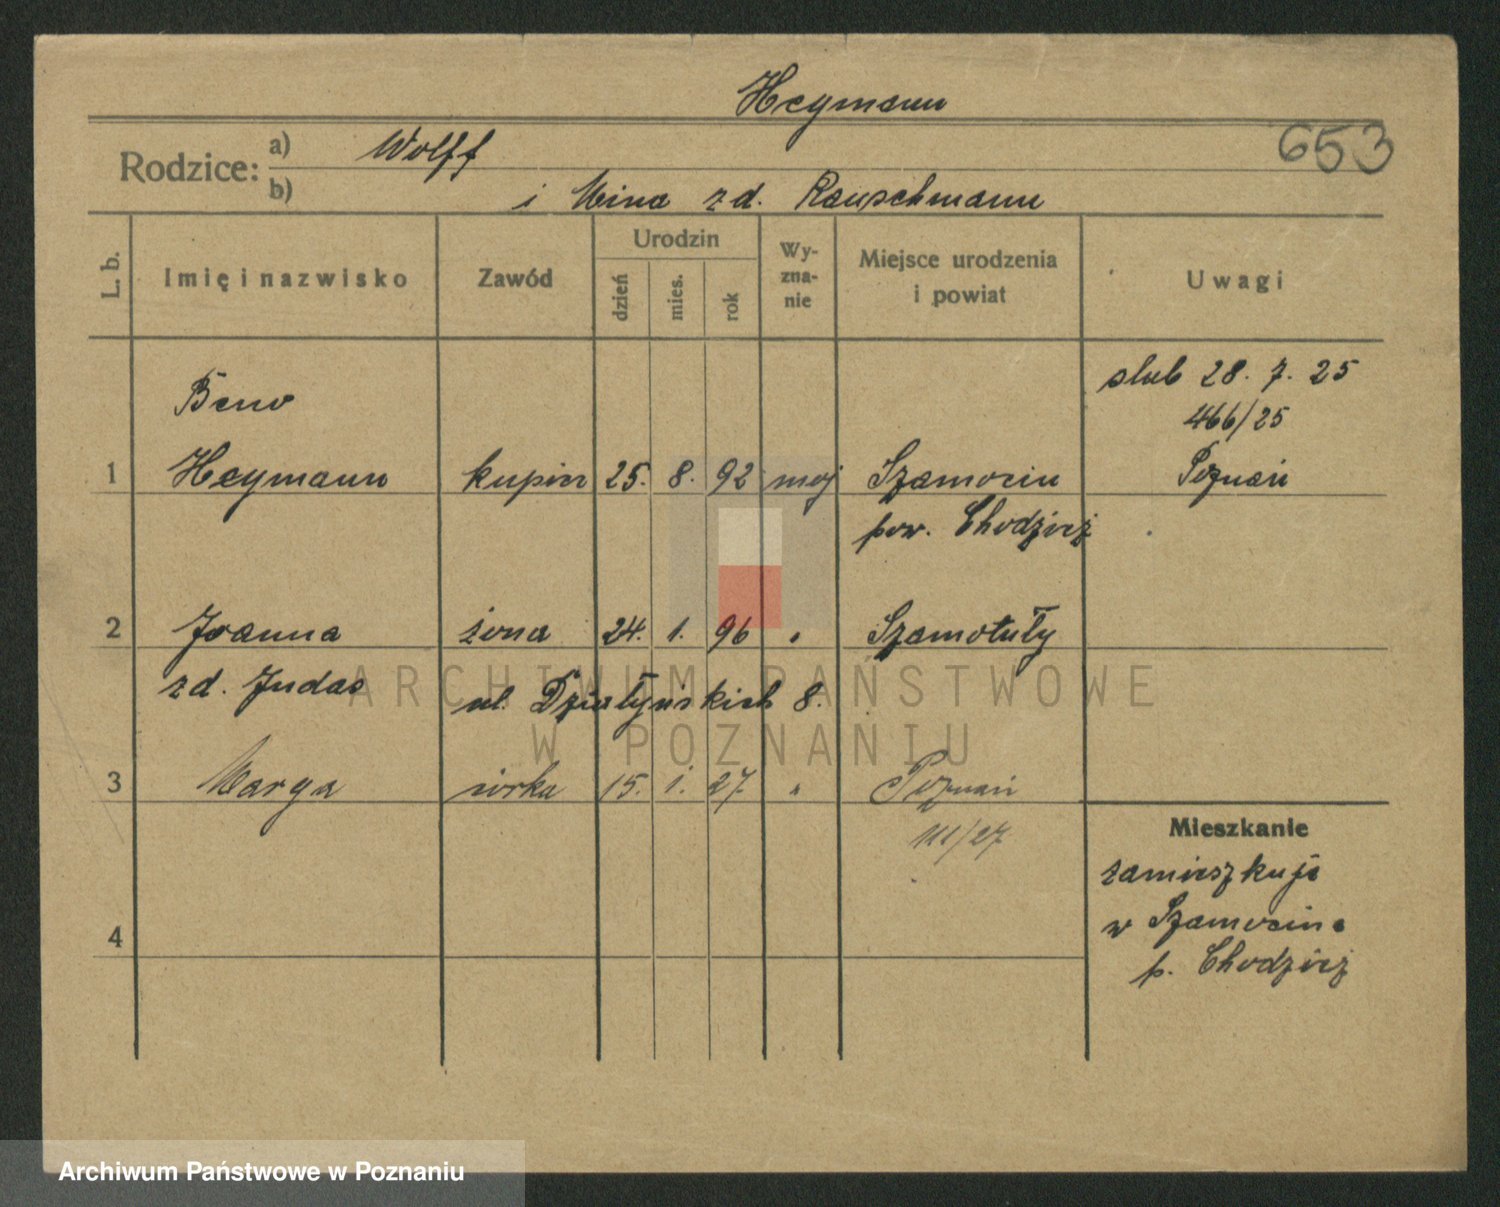 Heymann
653
Rodzice: a) Wolff
b) i Mina zd. Rauschmann
L. b.
Imię i nazwisko
Zawód
Urodzin
dzień
mies.
rok
Wy-
zna-
nie
Miejsce urodzenia
i powiat
Uwagi
ślub 28. 7. 25
466/25
Poznań
Beno
1 Heymann kupiec 25. 8. 92 moj Szamocin
pow. Chodzież
2 Joanna żona 24. 1. 96 " Szamotuły
zd. Judas ul. Działyńskich 8.
3 Marga córka 15. 1. 27 " Poznań
/27
Mieszkanie
zamieszkuje
w Szamocinie
p. Chodzież
4
ARCHIWUM PAŃSTWOWE
W POZNANIU
Archiwum Państwowe w Poznaniu